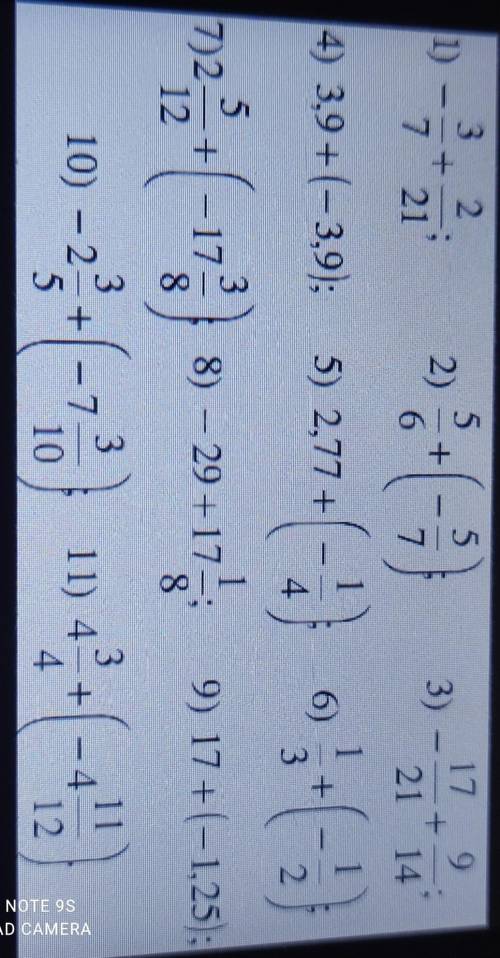 1) −3/7 + 2/21; 2) 5/6 + (−5/7); 3) −17/21 + 9/14;
4) 3,9 + (−3,9); 5) 2,77 + (−1/4); 6) 1/3 + (−1/2);
7) 2 5/12 + (−17 3/8); 8) −29 + 17 1/8; 9) 17 + (−1,25);
10) −2 3/5 + (−7 3/10); 11) 4 3/4 + (−4 11/12);
NOTE 9S
AD CAMERA